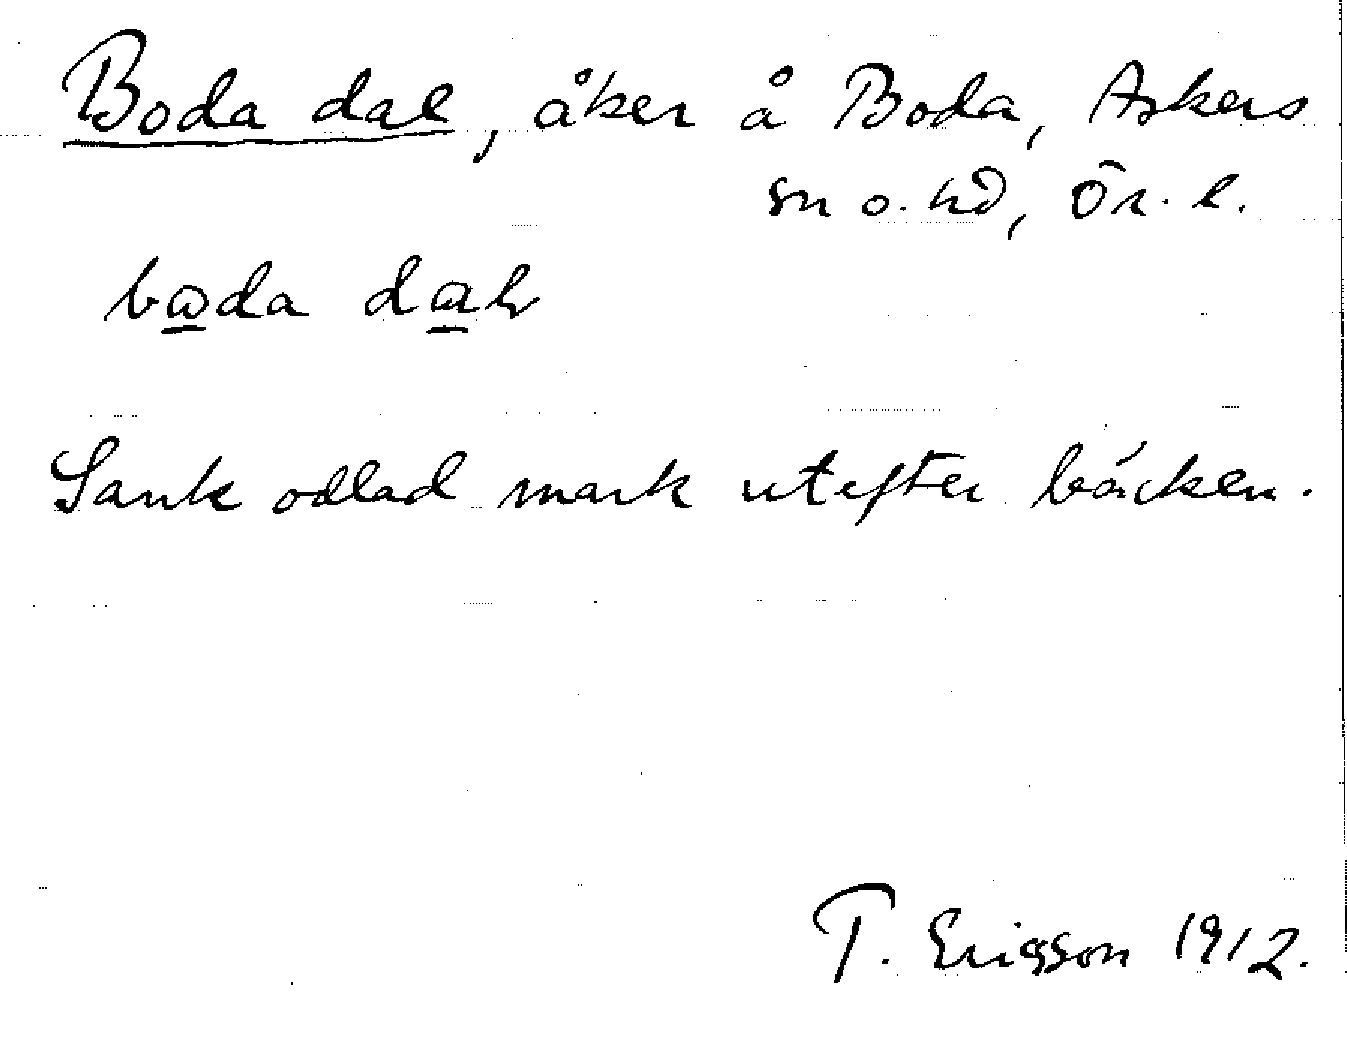 Boda dal, åker å Boda, Askers
sn o. hd, Ör. l.
boda dal
Sank odlad mark utefter bäcken.
T. Ericsson 1912.